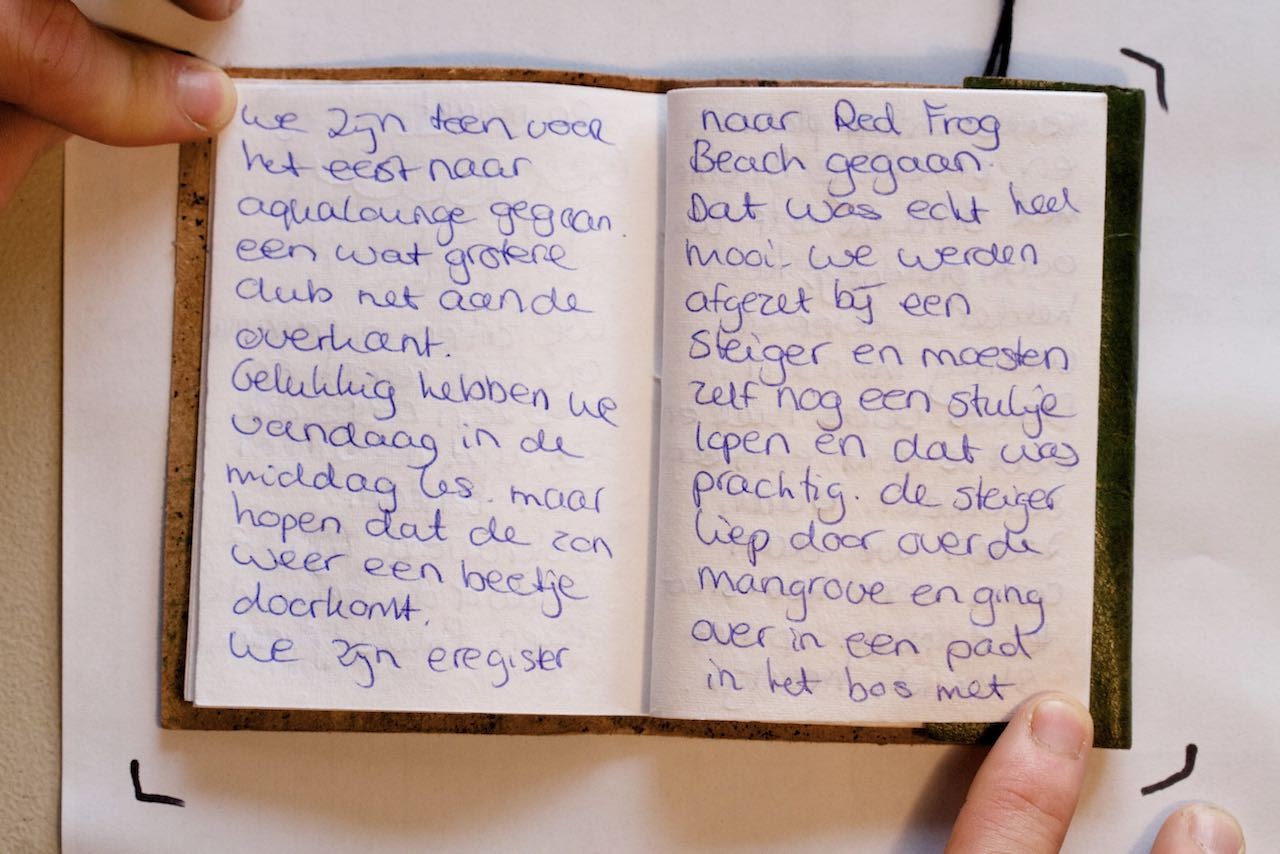 we zijn toen voor
het eest naar
aqualounge gegaan.
een wat grotere
club net aan de
overkant.
Gelukkig hebben we
vandaag in de
middag les. maar
hopen dat de zon
weer een beetje
doorkomt.
We zijn eregister
naar Red Frog
Beach gegaan.
Dat was echt heel
mooi. we werden
afgezet bij een
steiger en moesten
zelf nog een stukje
lopen en dat was
prachtig. de steiger
liep door over de
mangrove en ging
over in een pad
in het bos met